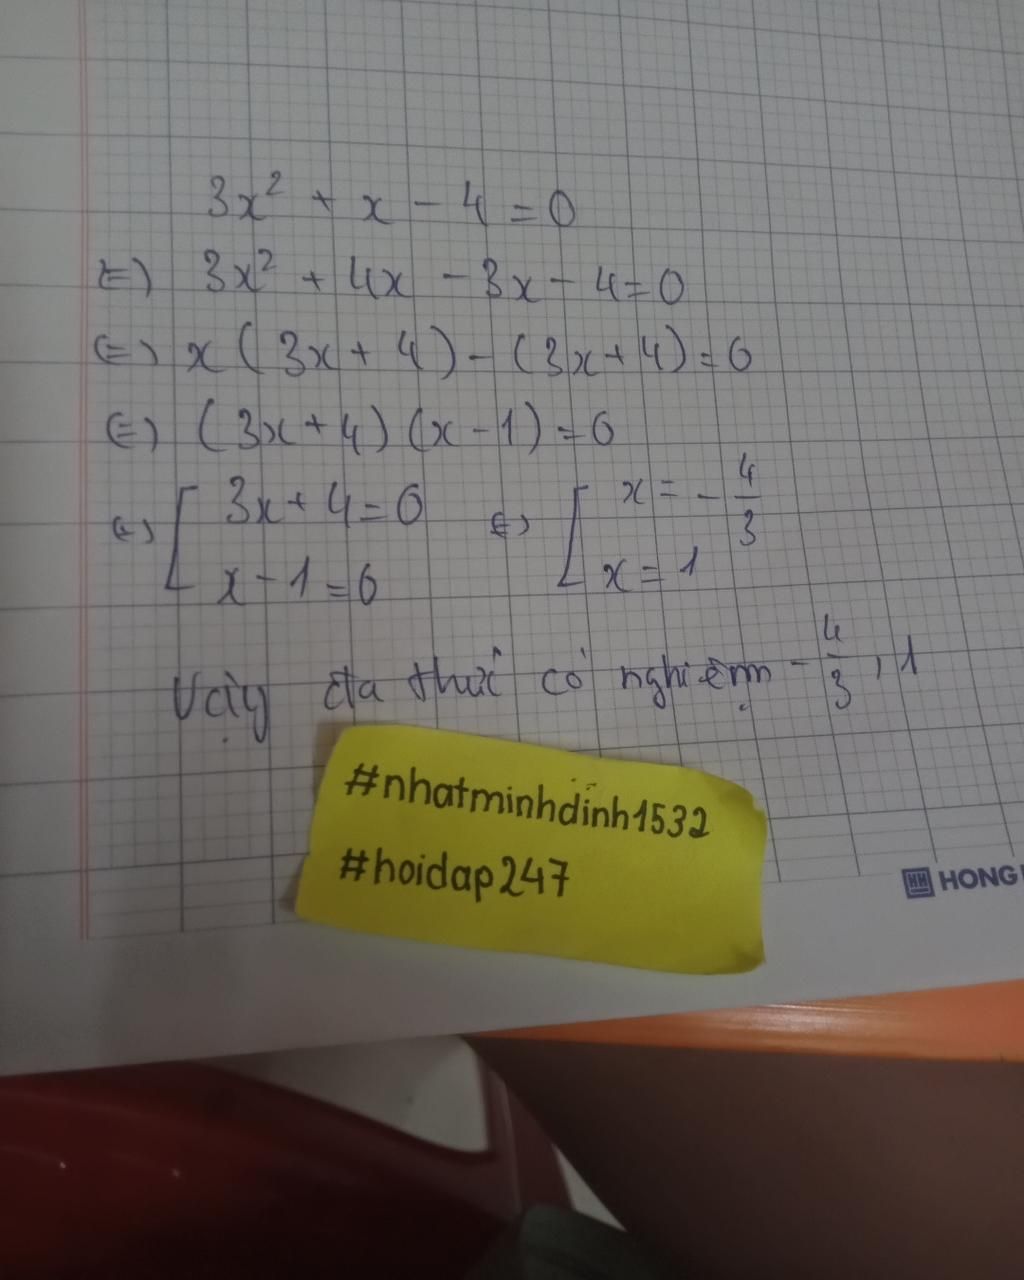 3x² + x - 4 = 0
⇔ 3x² + 4x - 3x - 4 = 0
⇔ x(3x + 4) - (3x + 4) = 0
⇔ (3x + 4)(x - 1) = 0
⇔ [ 3x + 4 = 0 ⇔ [ x = -4/3
x - 1 = 0 x = 1
Vậy đa thức có nghiệm -4/3, 1
#nhatminhdinh1532
#hoidap247
HH HONG